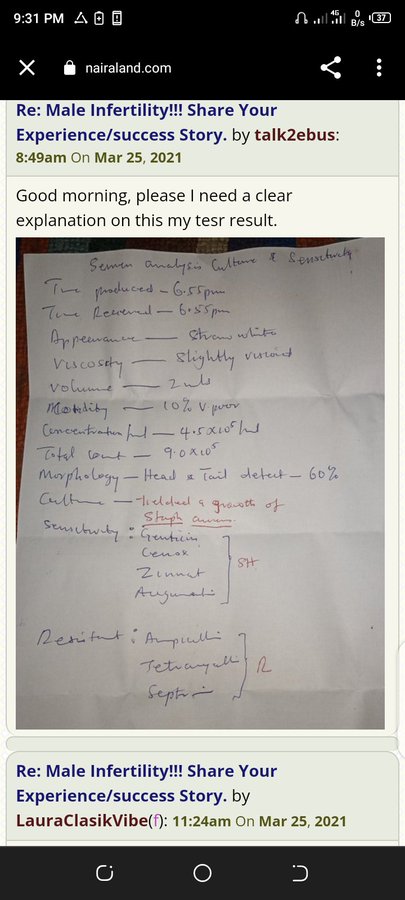 9:31 PM 4G 0 B/s 37
nairaland.com
Re: Male Infertility!!! Share Your
Experience/success Story. by talk2ebus:
8:49am On Mar 25, 2021
Good morning, please I need a clear
explanation on this my tesr result.
Semen analysis Culture & Sensitivity
Time produced - 6.55pm
Time Received - 6.55pm
Appearance - Straw white
Viscosity - Slightly viscoid
Volume - 2mls
Motility - 10% V poor
Concentration/ml - 4.5x10⁵/ml
Total count - 9.0x10⁵
Morphology - Head & Tail defect - 60%
Culture - Yielded a growth of
Staph aureus
Sensitivity:
Zinnat
Resistant:
R
Septrin
Re: Male Infertility!!! Share Your
Experience/success Story. by
LauraClasikVibe(f): 11:24am On Mar 25, 2021